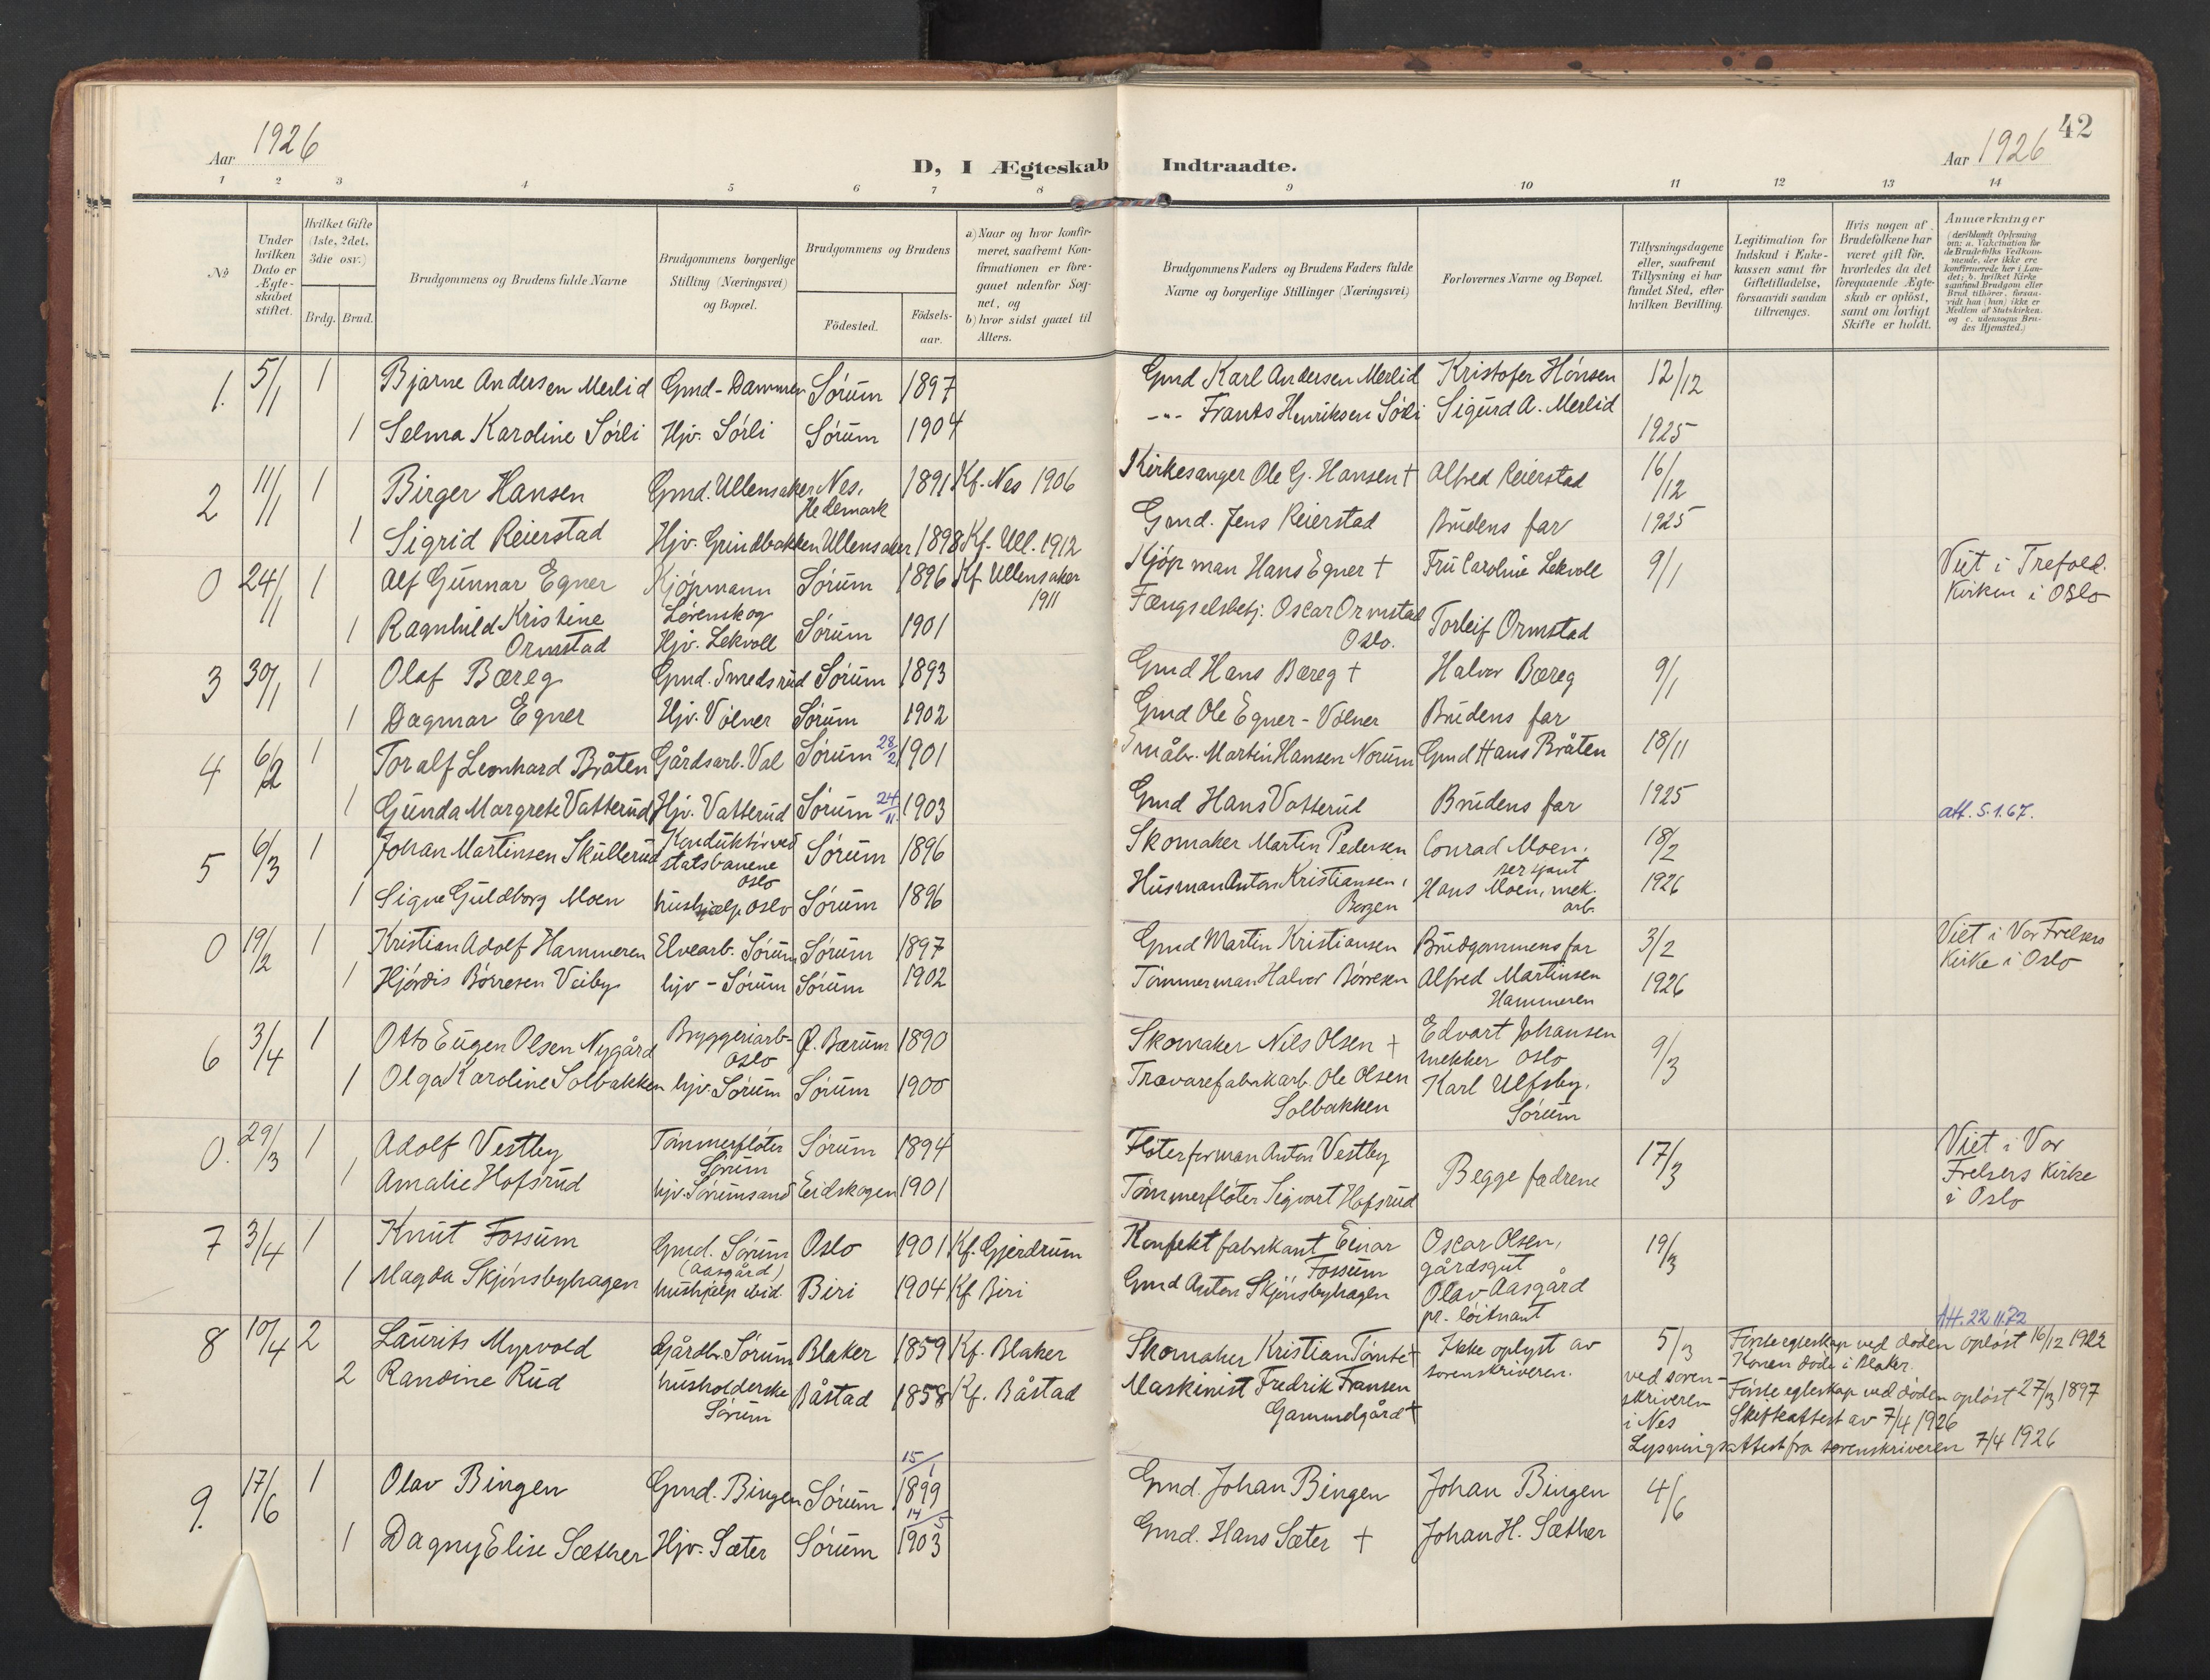 Aar 1926
D, I Ægteskab Indtraadte.
Aar 1926
42
1 2 3 4 5 6 7 8 9 10 11 12 13 14
No
Under hvilken Dato er Ægteskabet stiftet.
Hvilket Gifte (1ste, 2det, 3die osv.)
Brdg. Brud.
Brudgommens og Brudens fulde Navne
Brudgommens borgerlige Stilling (Næringsvei) og Bopæl.
Brudgommens og Brudens
Födested.
Födsels-aar.
a) Naar og hvor konfirmeret, saafremt Konfirmationen er foregaaet udenfor Sognet, og
b) hvor sidst gaaet til Alters.
Brudgommens Faders og Brudens Faders fulde Navne og borgerlige Stillinger (Næringsvei)
Forlovernes Navne og Bopæl.
Tillysningsdagene eller, saafremt Tillysning ei har fundet Sted, efter hvilken Bevilling.
Legitimation for Indskud i Enkekassen samt for Giftetilladelse, forsaavidt saadan tiltrænges.
Hvis nogen af Brudefolkene har været gift för, hvorledes da det foregaaende Ægteskab er oplöst, samt om lovligt Skifte er holdt.
Anmærkninger (deriblandt Oplysning om: a. Vakcination for de Brudefolks Vedkommende, der ikke ere konfirmerede her i Landet; b. hvilket Kirkesamfund Brudgom eller Brud tilhörer, forsaavidt han (hun) ikke er Medlem af Statskirken. og c. udensogns Brudes Hjemsted.)
1. 5/1 1 Bjarne Andersen Merlid Gmd - Dammen Sórum 1897 Gmd Karl Andersen Merlid Kristofer Hónsen 12/12
1 Selma Karoline Sórli Hjv. Sórli Sórum 1904 -"- Frants Henriksen Sórli Sigurd A. Merlid 1925
2 11/1 1 Birger Hansen Gmd. Ullensaker Nes, Hedemark 1891 Kf. Nes 1906 Kirkesanger Ole G. Hansen † Alfred Reierstad 16/12
1 Sigrid Reierstad Hjv. Grindbakken Ullensaker 1898 Kf. Ull. 1912 Gmd. Jens Reierstad Brudens far 1925
0 24/1 1 Alf Gunnar Egner Kjópmann Lórenskog Sórum 1896 Kf Ullensaker 1911 Kjópman Hans Egner † Fru Caroline Lekvoll 9/1 Viet i Trefold. Kirken i Oslo
1 Ragnhild Kristine Ormstad Hjv. Lekvoll Sórum 1901 Fængselsbetj. Oscar Ormstad Oslo. Torleif Ormstad
3 30/1 1 Olaf Bæreg Gmd. Smedsrud Sórum 1893 Gmd Hans Bæreg † Halvor Bæreg 9/1
1 Dagmar Egner Hjv. Vólner Sórum 1902 Gmd Ole Egner - Vólner Brudens far
4 6/2 1 Toralf Leonhard Bråten Gårdsarb. Val Sórum 28/2 1901 Småbr. Martin Hansen Norum Gmd Hans Bråten 18/11
1 Gunda Margrete Vatterud Hjv. Vatterud Sórum 24/11 1903 Gmd Hans Vatterud Brudens far 1925 att. 5.1.67.
5 6/3 1 Johan Martinsen Skullerud Konduktór ved statsbanene Oslo Sórum 1896 Skomaker Martin Pedersen Conrad Moen, sersjant 18/2
1 Signe Guldborg Moen hushjælp Oslo Sórum 1896 Husman Anton Kristiansen, Borgen Hans Moen, mek. arb. 1926
0 19/2 1 Kristian Adolf Hammeren Elvearb. Sórum Sórum 1897 Gmd Martin Kristiansen Brudgommens far 3/2 Viet i Vor Frelsers Kirke i Oslo
1 Hjórdis Bórresen Veiby hjv - Sórum Sórum 1902 Tómmerman Halvor Bórresen Alfred Martinsen Hammeren 1926
6 3/4 1 Otto Eugen Olsen Nygård Bryggeriarb- Oslo Ø. Bærum 1890 Skomaker Nils Olsen † Edvart Johansen mekker Oslo 9/3
1 Olga Karoline Solbakken hjv. Sórum Sórum 1900 Trævarefabrikarb. Ole Olsen Solbakken Karl Ulfsby, Sórum
0. 29/3 1 Adolf Vestby Tómmerflóter Sórum Sórum 1894 Flóterforman Anton Vestby Begge fædrene 17/3 Viet i Vor Frelsers Kirke i Oslo
1 Amalie Hofsrud hjv. Sórumsand Eidskogen 1901 Tómmerflóter Sigvart Hofsrud
7 3/4 1 Knut Fossum Gmd. Sórum (Aasgård) Oslo 1901 Kf. Gjerdrum Konfektfabrikant Einar Fossum Oscar Olsen, gårdsgut 19/3
1 Magda Skjónsbyhagen hushjælp ibid Biri 1904 Kf Biri Gmd Anton Skjónsbyhagen Olav Aasgård pr. lóitnant
Att. 22.11.72
8 10/4 2 Laurits Myrvold Gårdbr. Sórum Blaker 1859 Kf. Blaker Skomaker Kristian Tómte † Ikke oplyst av sorenskriveren. 5/3 Fórste egteskap ved dóden oplóst 16/12 1922 Konen dóde i Blaker.
2 Randine Rud husholderske Sórum Båstad 1858 Kf. Båstad Maskinist Fredrik Fransen Gammelgård † ved sorenskriveren i Nes Fórste egteskap ved dóden oplóst 27/3 1897 Skifteattest av 7/4 1926
Lysningsattest fra sorenskriveren 7/4 1926
9. 17/6 1 Olav Bingen Gmd. Bingen Sórum 15/1 1899 Gmd. Johan Bingen Johan Bingen 4/6
1 Dagny Elise Sæther Hjv. Sæter Sórum 14/5 1903 Gmd. Hans Sæter † Johan H. Sæther